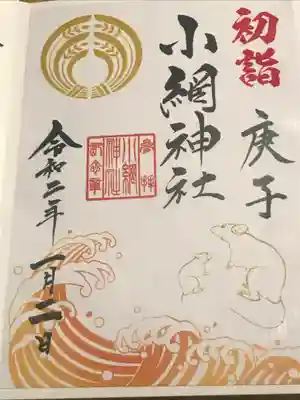 初詣
庚子
小網神社
参拝
小網
神社
令和二年一月二日